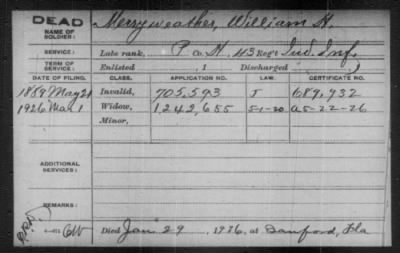 DEAD
NAME OF SOLDIER: Merryweather, William H.
SERVICE: Late rank, P Co. H, 43 Reg't Ind. Inf.
TERM OF SERVICE: Enlisted , 1 Discharged , 1
DATE OF FILING. CLASS. APPLICATION NO. LAW. CERTIFICATE NO.
1889 May 21 Invalid, 705,593 J 689,932
1926 Mar 1 Widow, 1,242,655 5-1-20 A5-22-26
Minor,
ADDITIONAL SERVICES:
REMARKS:
Died Jan 29, 1926, at Sanford, Fla